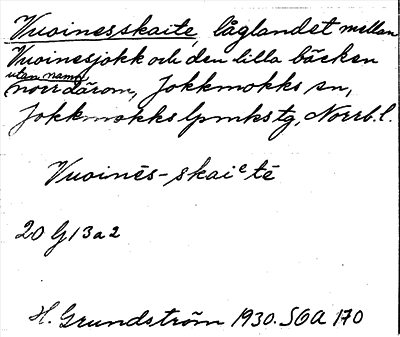 Vuoinesskaite, låglandet mellan
Vuoinesjokk och den lilla bäcken
utan namn
norr därom, Jokkmokks sn,
Jokkmokks lpmkstg, Norrb. l.
Vuoinēs-skaiᵉtē
20 G 13 a 2
H. Grundström 1930. SOA 170